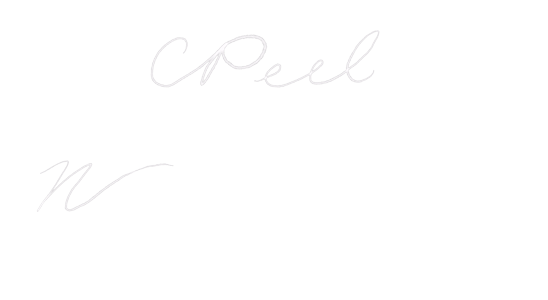 CPeel
N